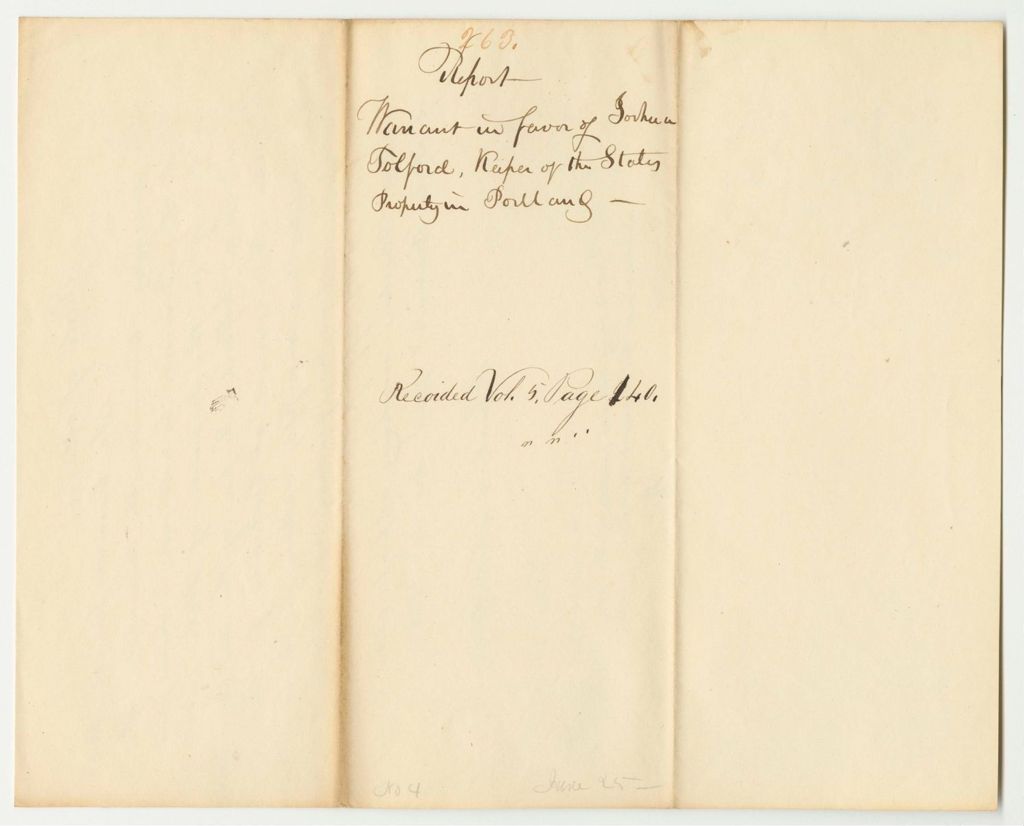 263.
Report
Warrant in favor of Joshua
Tolford, Keeper of the States
Property in Portland —
Recorded Vol. 5. Page 140.
No 4 June 25 —